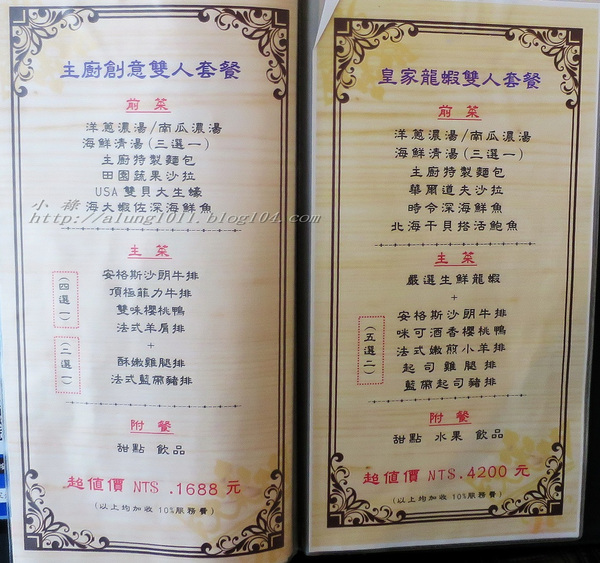 主廚創意雙人套餐
前菜
洋蔥濃湯/南瓜濃湯
海鮮清湯(三選一)
主廚特製麵包
田園蔬果沙拉
USA 雙貝大生蠔
海大蝦佐深海鮮魚
小祿
http://alung1011.blog104.com
主菜
(四選一)
安格斯沙朗牛排
頂極菲力牛排
雙味櫻桃鴨
法式羊肩排
+
(二選一)
酥嫩雞腿排
法式藍帶豬排
附餐
甜點 飲品
超值價 NT$ .1688 元
(以上均加收 10%服務費)
皇家龍蝦雙人套餐
前菜
洋蔥濃湯/南瓜濃湯
海鮮清湯(三選一)
主廚特製麵包
華爾道夫沙拉
時令深海鮮魚
北海干貝搭活鮑魚
主菜
嚴選生鮮龍蝦
+
(五選二)
安格斯沙朗牛排
咪可酒香櫻桃鴨
法式嫩煎小羊排
起司雞腿排
藍帶起司豬排
附餐
甜點 水果 飲品
超值價 NT$.4200 元
(以上均加收 10%服務費)